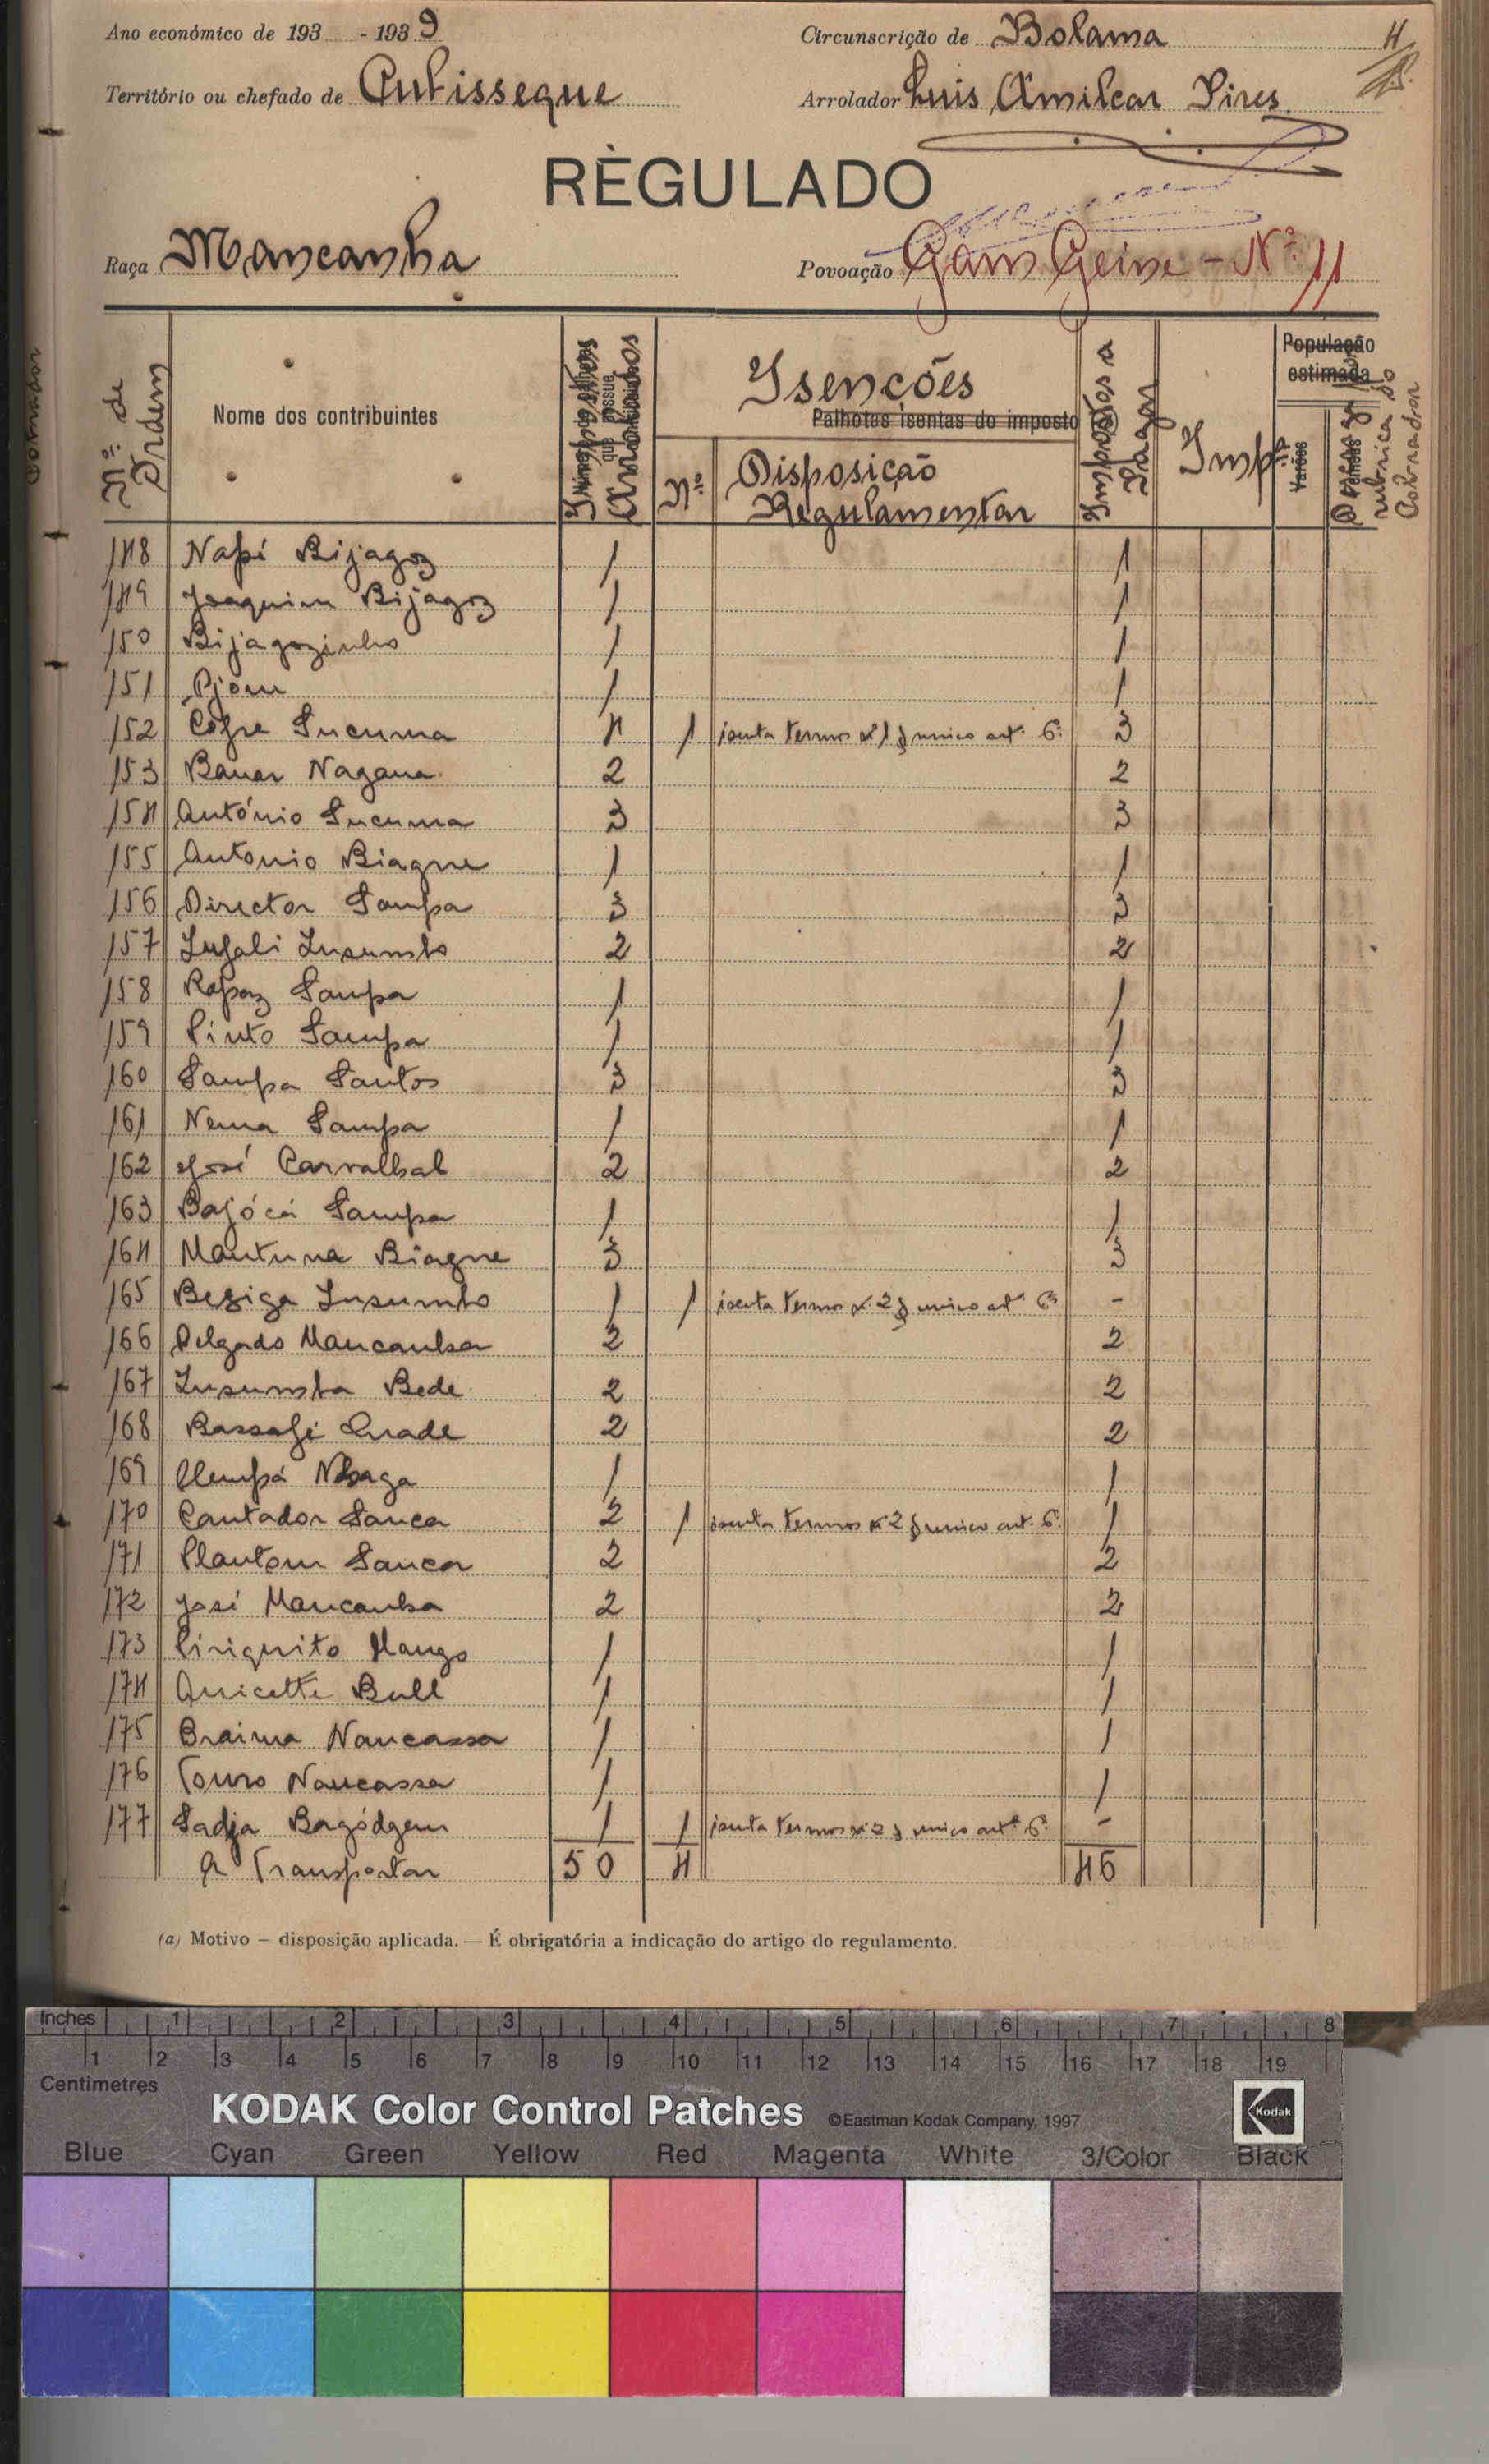 Ano económico de 193 - 1939 Circunscrição de Bolama 4
Território ou chefado de Cubisseque Arrolador Luis Amilcar Pires
RÈGULADO
Raça Mancanha Povoação Gam Geine - Nº 11
Nº de Ordem Nome dos contribuintes Impostos Arrolados Isenções Impostos a Pagar Imp. População estimada
Palhotas isentas do imposto
Nº Disposição Regulamentar Varões rubrica do Cobrador
148 Napi Bijagoz 1 1
149 Joaquim Bijagoz 1 1
150 Bijagozinho 1 1
151 Djom 1 1
152 Cofre Sucuma 4 1 isenta termos nº 1 § unico artº 6º 3
153 Banar Nagana 2 2
154 António Sucuma 3 3
155 Antonio Biague 1 1
156 Director Sampa 3 3
157 Lufali Insumbo 2 2
158 Rapaz Sampa 1 1
159 Pinto Sampa 1 1
160 Sampa Santos 3 3
161 Nema Sampa 1 1
162 José Carvalhal 2 2
163 Bajócá Sampa 1 1
164 Mantuna Biague 3 3
165 Beziga Insumbo 1 1 isenta termos nº 2 § unico artº 6º -
166 Delgado Mancanha 2 2
167 Insumba Bede 2 2
168 Bassafi Quade 2 2
169 Clempá 1 1
170 Cantador Sanca 2 1 isenta termos nº 2 § unico art. 6º 1
171 Plantom Sanca 2 2
172 José Mancanha 2 2
173 Piriquito Mango 1 1
174 Quicette Bull 1 1
175 Braima Nancassa 1 1
176 Touro Nancassa 1 1
177 Sadja Bagódgem 1 1 isenta termos nº 2 § unico artº 6º -
A Transportar 50 4 46
(a) Motivo — disposição aplicada. — É obrigatória a indicação do artigo do regulamento.
Inches 1 2 3 4 5 6 7 8
1 2 3 4 5 6 7 8 9 10 11 12 13 14 15 16 17 18 19
Centimetres
KODAK Color Control Patches ©Eastman Kodak Company, 1997 Kodak
Blue Cyan Green Yellow Red Magenta White 3/Color Black